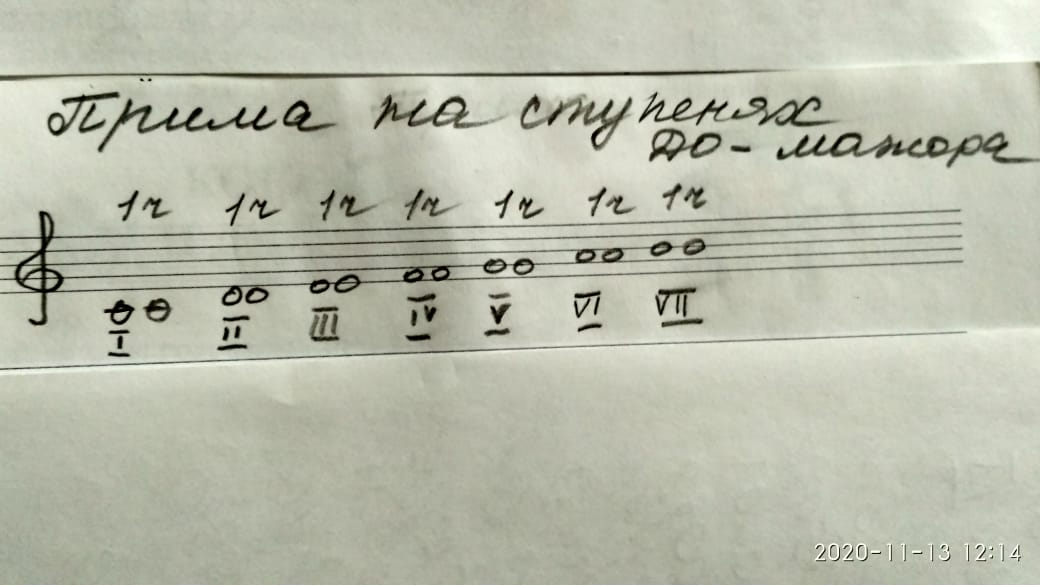 Прима на ступенях
До-мажора
1ч 1ч 1ч 1ч 1ч 1ч 1ч
I II III IV V VI VII
2020-11-13 12:14